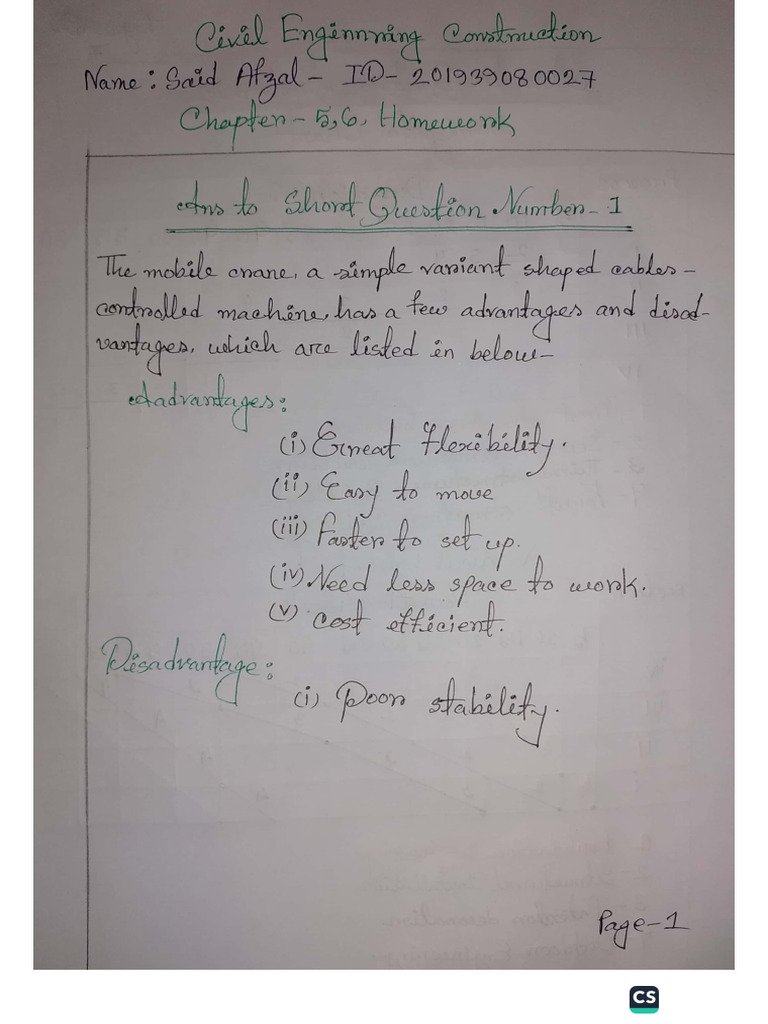 Civil Enginnring Construction
Name: Said Afzal - ID- 201939080027
Chapter - 5,6, Homework
Ans to Short Question Number - 1
The mobile crane, a simple variant shaped cables-
controlled machine, has a few advantages and disad-
vantages, which are listed in below-
Aadvantages:
(i) Great flexibility.
(ii) Easy to move
(iii) Faster to set up.
(iv) Need less space to work.
(v) cost efficient.
Disadvantage:
(i) Poor stability.
Page-1
CS